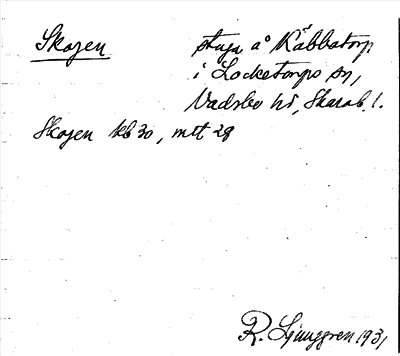 Skogen stuga å Kåbbatorp
i Locketorps sn,
Vadsbo hd, Skarab. l.
Skogen kb 30, mtt 29
R. Ljunggren 1931